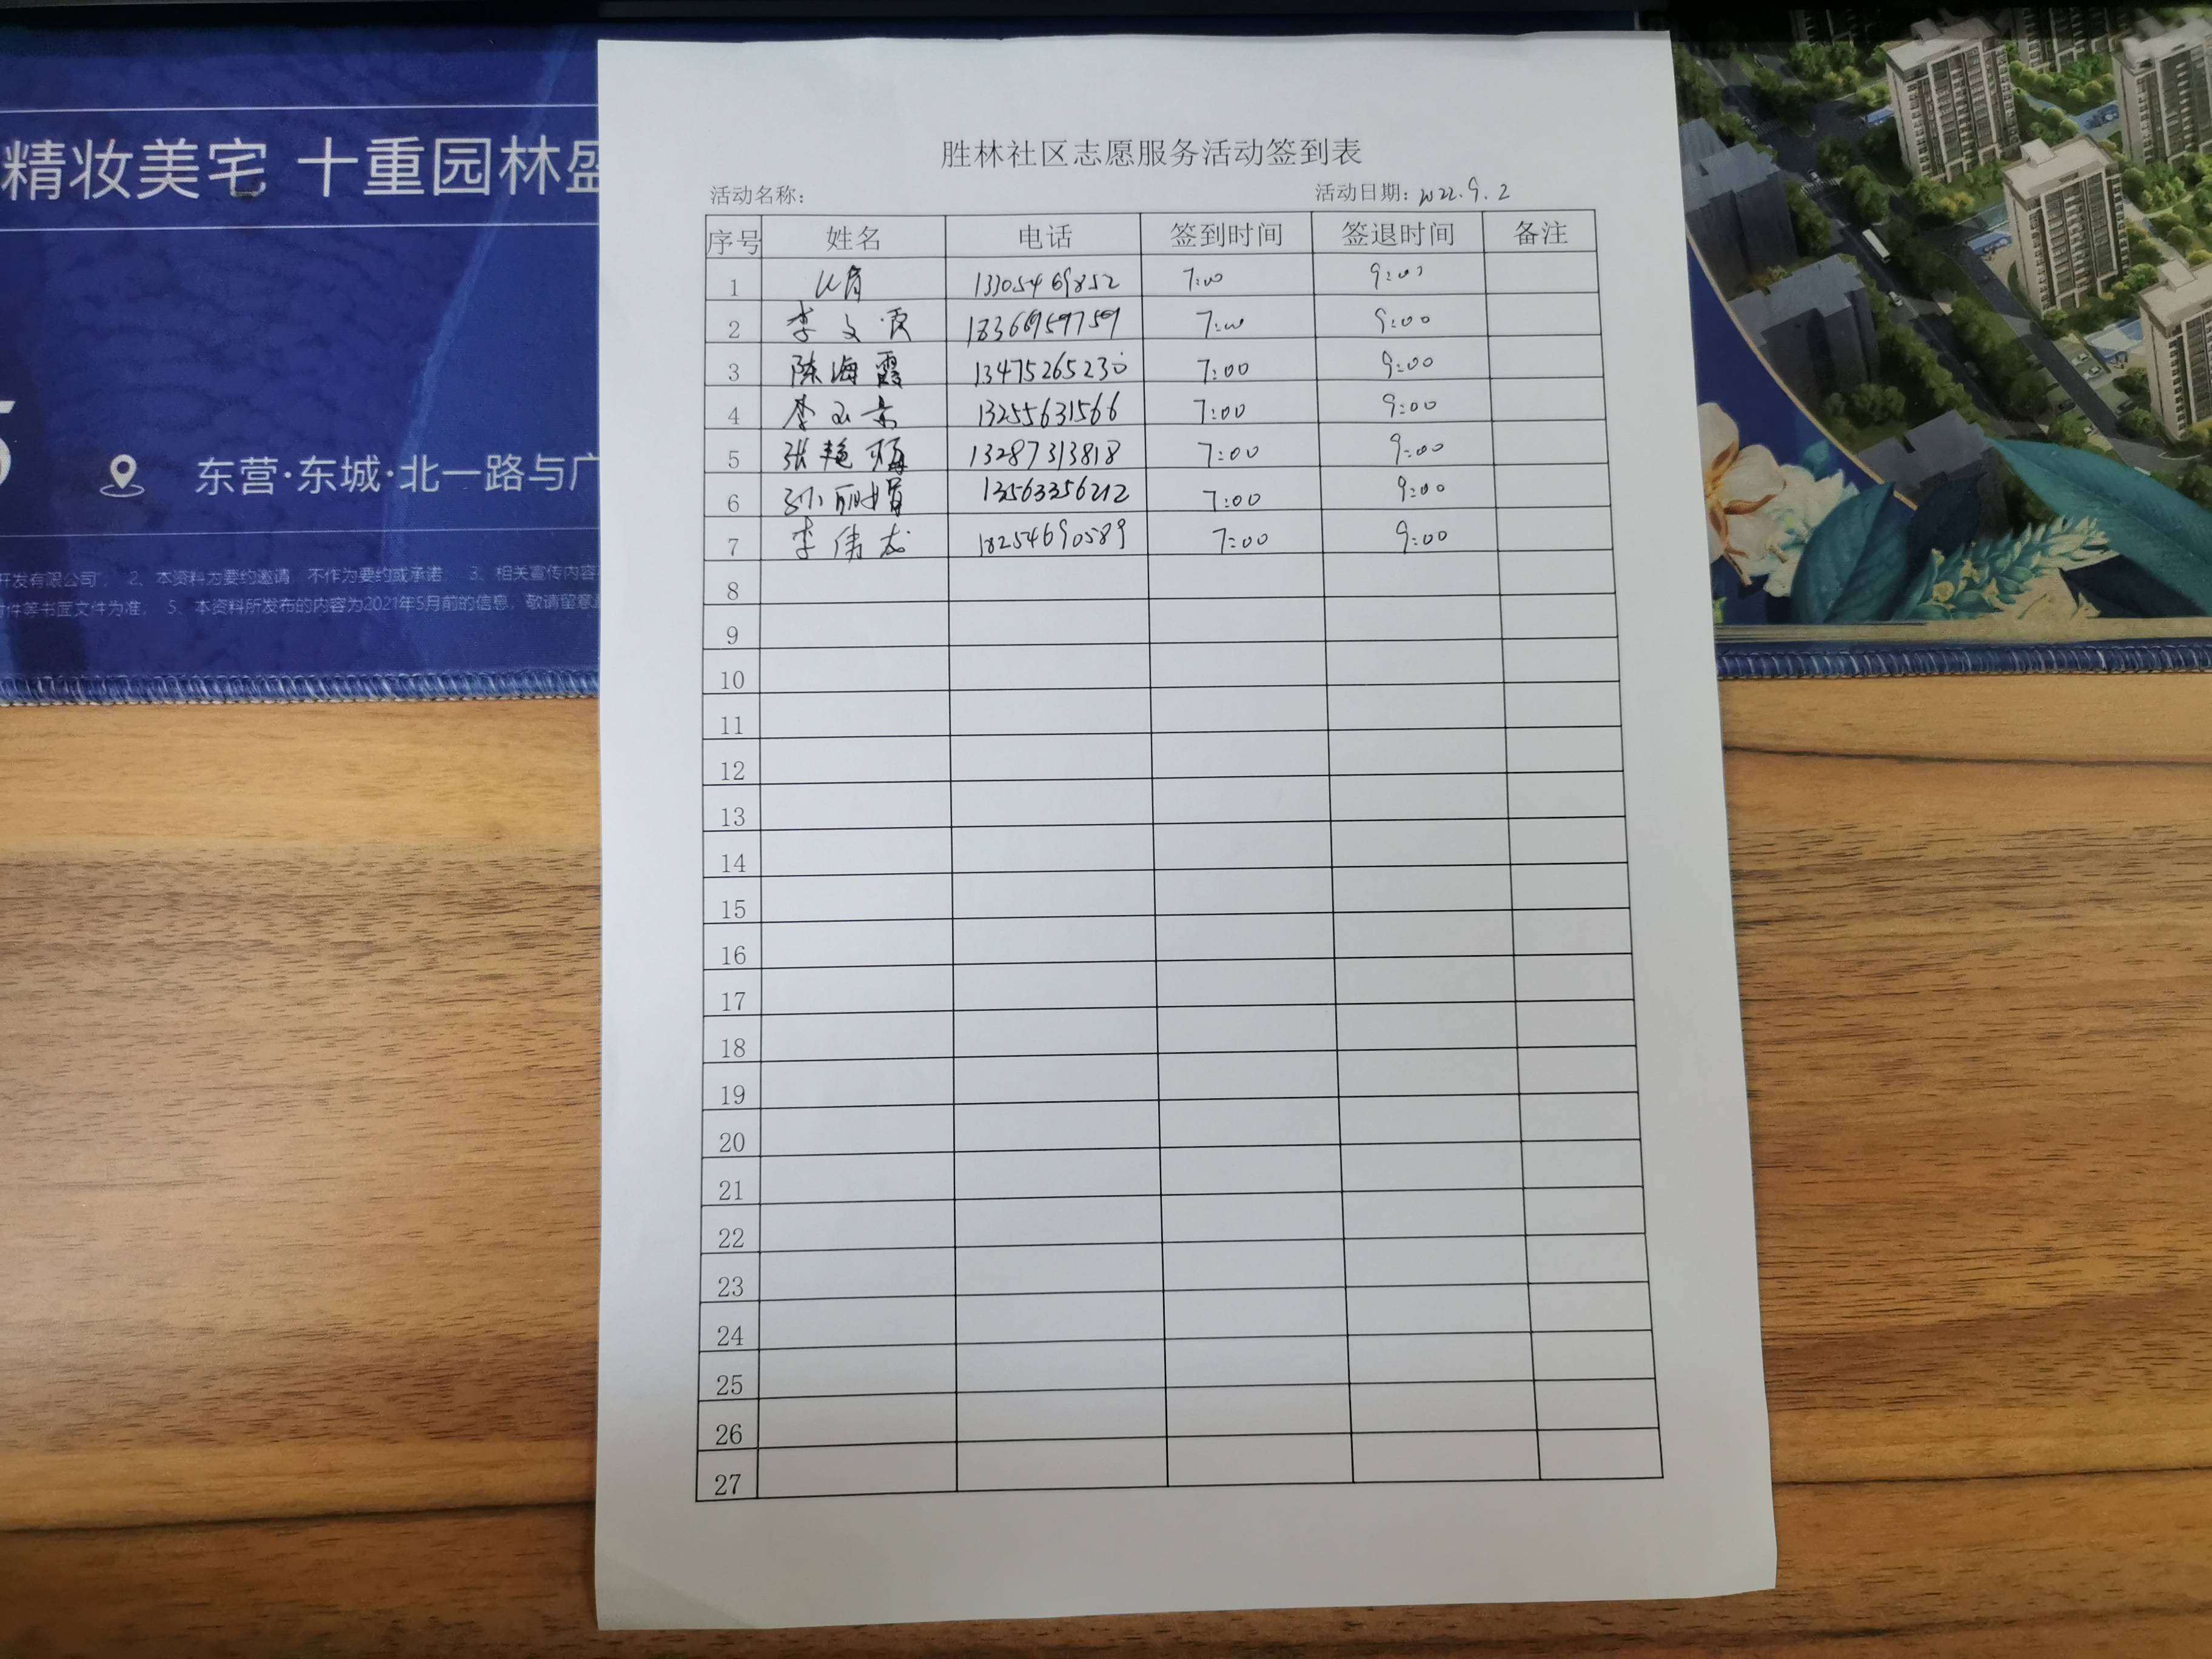 精妆美宅 十重园林盛
东营·东城·北一路与广
开发有限公司", 2、本资料为要约邀请, 不作为要约或承诺 3、相关宣传内容
件等书面文件为准, 5、本资料所发布的内容为2021年5月前的信息, 敬请留意
胜林社区志愿服务活动签到表
活动名称: 活动日期: 2022.9.2
序号 姓名 电话 签到时间 签退时间 备注
1 13305469852 7:00 9:00
2 李文霞 18366959759 7:00 9:00
3 陈海霞 13475265230 7:00 9:00
4 李 13255631566 7:00 9:00
5 张艳梅 13287313818 7:00 9:00
6 孙丽娟 13563356212 7:00 9:00
7 李伟龙 18254690589 7:00 9:00
8
9
10
11
12
13
14
15
16
17
18
19
20
21
22
23
24
25
26
27